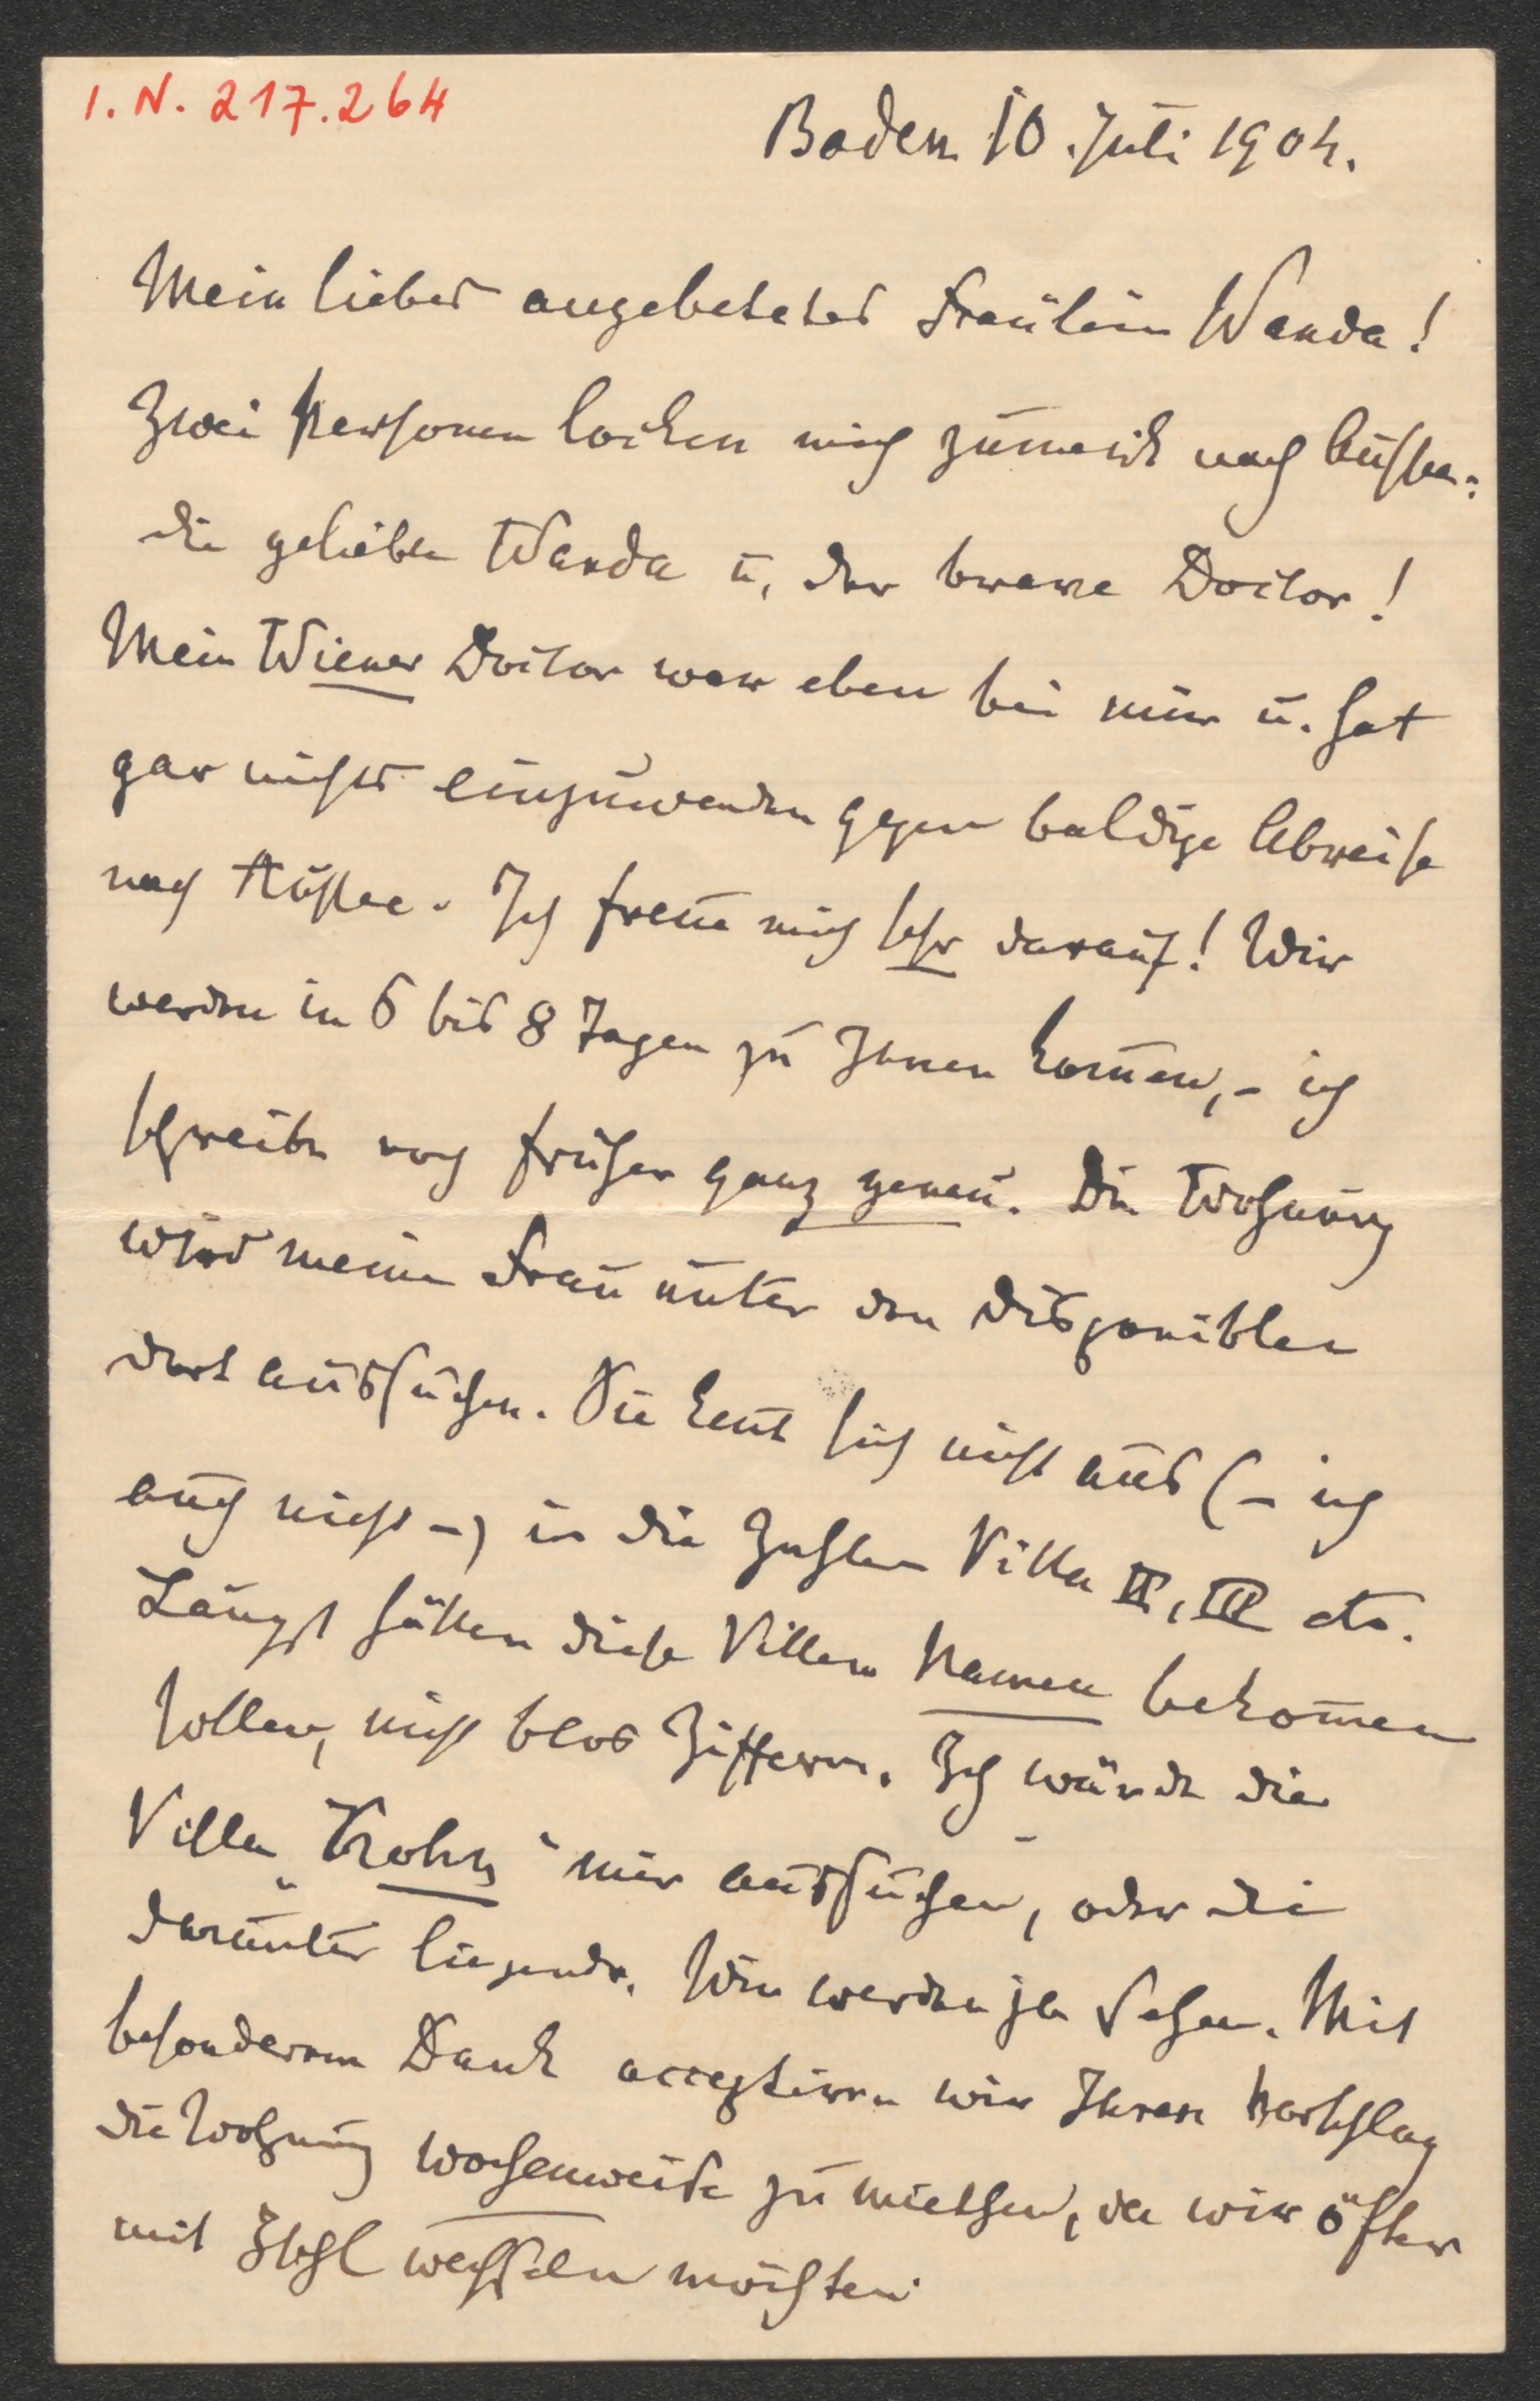 I. N. 217.264
Baden 10. Juli 1904.
Mein liebes angebetetes Fräulein Wanda!
Zwei Personen locken mich zumeist nach Aussee:
die geliebte Wanda u. der brave Doctor!
Mein Wiener Doctor war eben bei mir u. hat
gar nichts einzuwenden gegen baldige Abreise
nach Aussee. Ich freue mich sehr darauf! Wir
werden in 6 bis 8 Tagen zu Ihnen kom̄en, – ich
schreibe noch früher ganz genau. Die Wohnung
wird meine Frau unter den disponiblen
dort aussuchen. Sie ken̄t sich nicht aus (– ich
auch nicht –) in die Zahlen Villa II, III etc.
Längst hätten diese Villen Namen bekom̄en
sollen, nicht blos Ziffern. Ich würde die
Villa „Krohn“ mir aussuchen, oder die
darunter liegende. Wir werden ja sehen. Mit
besonderem Dank acceptiren wir Ihren Vorschlag
die Wohnung wochenweise zu miethen, da wir öfter
mit Ischl wechseln möchten